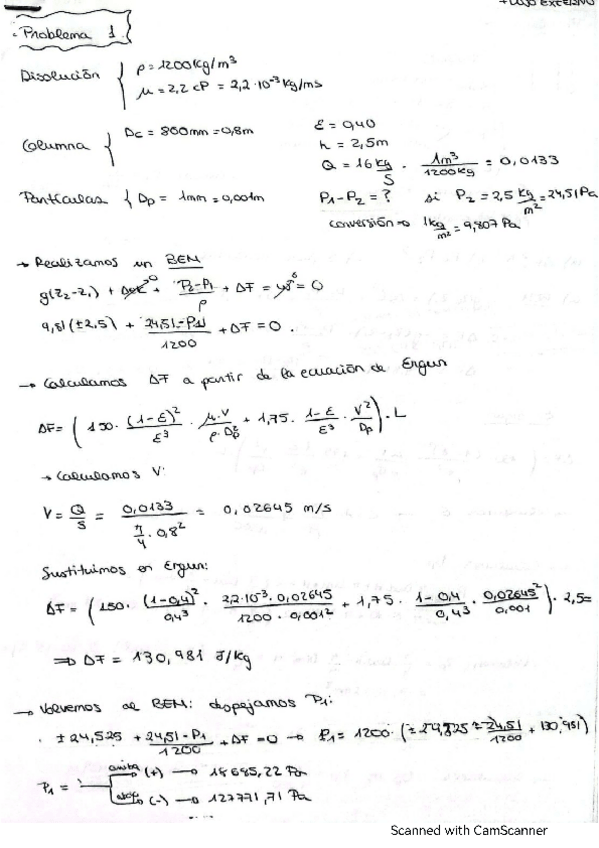 FLUJO EXTERNO
Problema 1
Disolución { ρ = 1200 kg/m³
μ = 2,2 cP = 2,2·10⁻³ kg/ms
Columna { Dc = 800mm = 0,8m
ε = 0,40
h = 2,5m
Q = 16 kg/s · 1m³/1200kg = 0,0133
Partículas { Dp = 1mm = 0,001m
P1-P2 = ? si P2 = 2,5 kg/m² = 24,51 Pa
conversión → 1 kg/m² = 9,807 Pa
→ Realizamos un BEM
g(z2-z1) + + P2-P1/ρ + ΔF = = 0
9,81(±2,5) + 24,51-P1/1200 + ΔF = 0.
→ Calculamos ΔF a partir de la ecuación de Ergun
ΔF = (150· (1-ε)²/ε³ · μ·V/ρ·Dp² + 1,75· 1-ε/ε³ · V²/Dp)·L
→ Calculamos V:
V = Q/S = 0,0133/(π/4 · 0,8²) = 0,02645 m/s
Sustituimos en Ergun:
ΔF = (150· (1-0,4)²/0,4³ · 2,2·10⁻³·0,02645/1200·0,001² + 1,75· 1-0,4/0,4³ · 0,02645²/0,001)·2,5=
⇒ ΔF = 130,981 J/kg
→ Volvemos al BEM: despejamos P1:
± 24,525 + 24,51-P1/1200 + ΔF = 0 → P1 = 1200· (± 24,525 + 24,51/1200 + 130,981)
P1 = (+) → 18685,22 Pa
(-) → 127771,71 Pa
Scanned with CamScanner